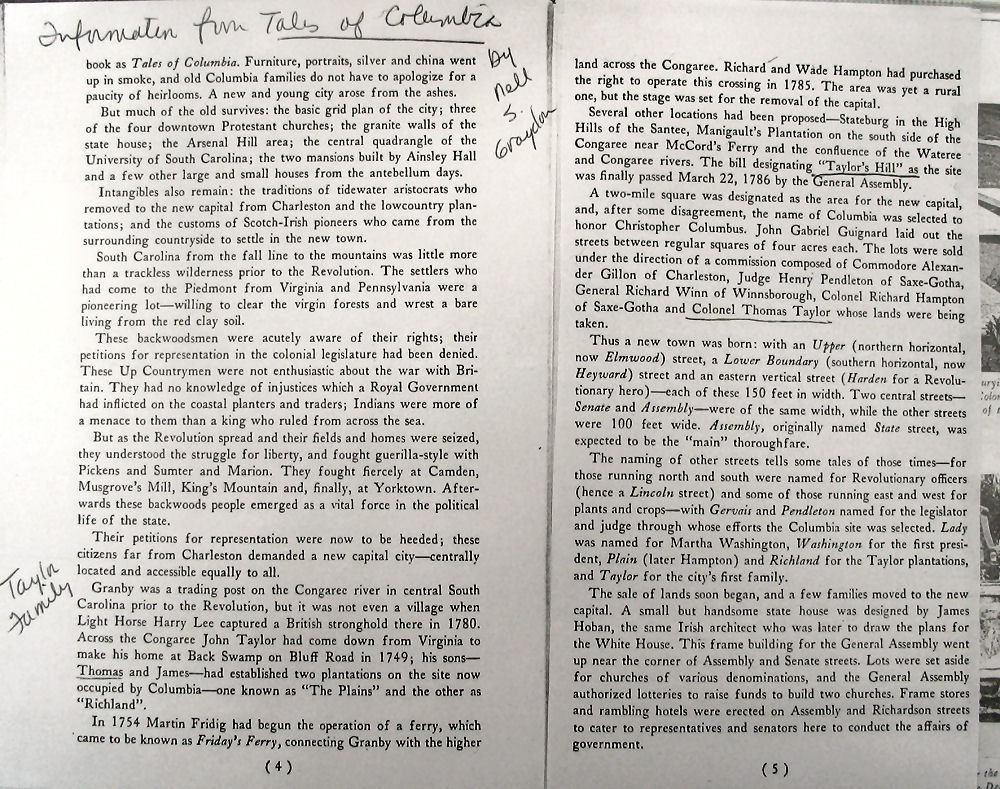 Information from Tales of Columbia
by
Nell
S.
Graydon
book as Tales of Columbia. Furniture, portraits, silver and china went
up in smoke, and old Columbia families do not have to apologize for a
paucity of heirlooms. A new and young city arose from the ashes.
But much of the old survives: the basic grid plan of the city; three
of the four downtown Protestant churches; the granite walls of the
state house; the Arsenal Hill area; the central quadrangle of the
University of South Carolina; the two mansions built by Ainsley Hall
and a few other large and small houses from the antebellum days.
Intangibles also remain: the traditions of tidewater aristocrats who
removed to the new capital from Charleston and the lowcountry plan-
tations; and the customs of Scotch-Irish pioneers who came from the
surrounding countryside to settle in the new town.
South Carolina from the fall line to the mountains was little more
than a trackless wilderness prior to the Revolution. The settlers who
had come to the Piedmont from Virginia and Pennsylvania were a
pioneering lot—willing to clear the virgin forests and wrest a bare
living from the red clay soil.
These backwoodsmen were acutely aware of their rights; their
petitions for representation in the colonial legislature had been denied.
These Up Countrymen were not enthusiastic about the war with Bri-
tain. They had no knowledge of injustices which a Royal Government
had inflicted on the coastal planters and traders; Indians were more of
a menace to them than a king who ruled from across the sea.
But as the Revolution spread and their fields and homes were seized,
they understood the struggle for liberty, and fought guerilla-style with
Pickens and Sumter and Marion. They fought fiercely at Camden,
Musgrove's Mill, King's Mountain and, finally, at Yorktown. After-
wards these backwoods people emerged as a vital force in the political
life of the state.
Their petitions for representation were now to be heeded; these
citizens far from Charleston demanded a new capital city—centrally
located and accessible equally to all.
Taylor
Family
Granby was a trading post on the Congaree river in central South
Carolina prior to the Revolution, but it was not even a village when
Light Horse Harry Lee captured a British stronghold there in 1780.
Across the Congaree John Taylor had come down from Virginia to
make his home at Back Swamp on Bluff Road in 1749; his sons—
Thomas and James—had established two plantations on the site now
occupied by Columbia—one known as "The Plains" and the other as
"Richland".
In 1754 Martin Fridig had begun the operation of a ferry, which
came to be known as Friday's Ferry, connecting Granby with the higher
(4)
land across the Congaree. Richard and Wade Hampton had purchased
the right to operate this crossing in 1785. The area was yet a rural
one, but the stage was set for the removal of the capital.
Several other locations had been proposed—Stateburg in the High
Hills of the Santee, Manigault's Plantation on the south side of the
Congaree near McCord's Ferry and the confluence of the Wateree
and Congaree rivers. The bill designating "Taylor's Hill" as the site
was finally passed March 22, 1786 by the General Assembly.
A two-mile square was designated as the area for the new capital,
and, after some disagreement, the name of Columbia was selected to
honor Christopher Columbus. John Gabriel Guignard laid out the
streets between regular squares of four acres each. The lots were sold
under the direction of a commission composed of Commodore Alexan-
der Gillon of Charleston, Judge Henry Pendleton of Saxe-Gotha,
General Richard Winn of Winnsborough, Colonel Richard Hampton
of Saxe-Gotha and Colonel Thomas Taylor whose lands were being
taken.
Thus a new town was born: with an Upper (northern horizontal,
now Elmwood) street, a Lower Boundary (southern horizontal, now
Heyward) street and an eastern vertical street (Harden for a Revolu-
tionary hero)—each of these 150 feet in width. Two central streets—
Senate and Assembly—were of the same width, while the other streets
were 100 feet wide. Assembly, originally named State street, was
expected to be the "main" thoroughfare.
The naming of other streets tells some tales of those times—for
those running north and south were named for Revolutionary officers
(hence a Lincoln street) and some of those running east and west for
plants and crops—with Gervais and Pendleton named for the legislator
and judge through whose efforts the Columbia site was selected. Lady
was named for Martha Washington, Washington for the first presi-
dent, Plain (later Hampton) and Richland for the Taylor plantations,
and Taylor for the city's first family.
The sale of lands soon began, and a few families moved to the new
capital. A small but handsome state house was designed by James
Hoban, the same Irish architect who was later to draw the plans for
the White House. This frame building for the General Assembly went
up near the corner of Assembly and Senate streets. Lots were set aside
for churches of various denominations, and the General Assembly
authorized lotteries to raise funds to build two churches. Frame stores
and rambling hotels were erected on Assembly and Richardson streets
to cater to representatives and senators here to conduct the affairs of
government.
(5)